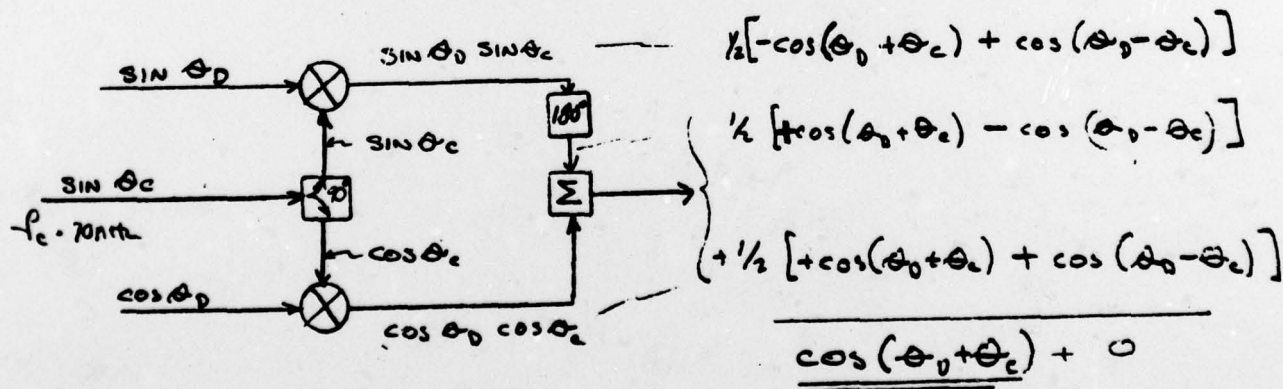 SIN θ_D
SIN θ_C
f_c = 70MHz
COS θ_D
SIN θ_C
90°
COS θ_C
SIN θ_D SIN θ_C
180°
Σ
COS θ_D COS θ_C
½[-COS(θ_D + θ_C) + COS(θ_D - θ_C)]
½ [+COS(θ_D + θ_C) - COS(θ_D - θ_C)]
+ ½ [+COS(θ_D + θ_C) + COS(θ_D - θ_C)]
COS(θ_D + θ_C) + 0